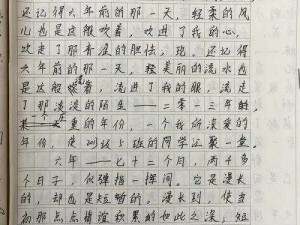 还记得六年前的那一天，轻柔的风
也是这般吹着，吹进了我的心，
吹走了那青涩的胆怯，也还记得
六年前的那一天，轻美丽的流水也
是这般缓着，流进了我的眼，流走
了那淡淡的陌生——二零一三年的，
重的年份，一个我所深爱的
年份，使201级5班的同学汇聚一堂。
六年——七十二个月，两千多
个日子，似弹指一挥间。它是漫长
的，却也是短暂的。漫长到，使当
初那点点情谊积累的如此之深，短